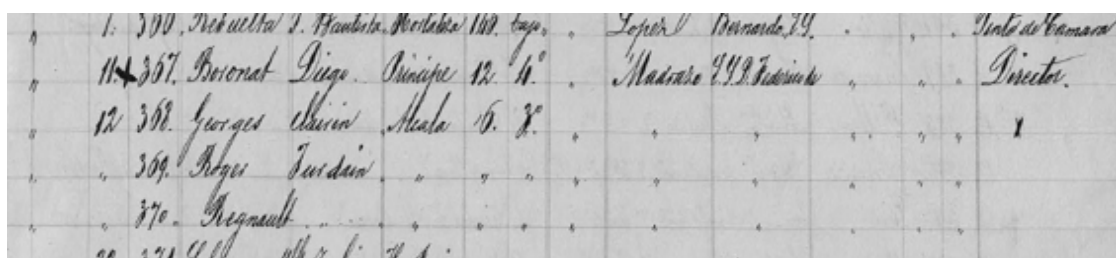 " 1. 366. Revuelta J. Bautista. Hortaleza 140. bajo " " Lopez Bernardo, D. " " " Pintor de Camara
" 11 367. Boronat Diego. Principe 12. 4º " Madrazo Federico de " " " Director.
" 12 368. Georges Clairin Alcala 6. 3º " " " " " "
" " 369. Roger Jurdain " " " " " " " " "
" " 370. Regnault " " " " " " " " "